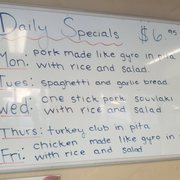 Daily Specials $6.95
Mon: pork made like gyro in pita
with rice and salad
Tues: spaghetti and garlic bread
Wed: one stick pork souvlaki
with rice and salad
Thurs: turkey club in pita
Fri: chicken made like gyro in
with rice and salad